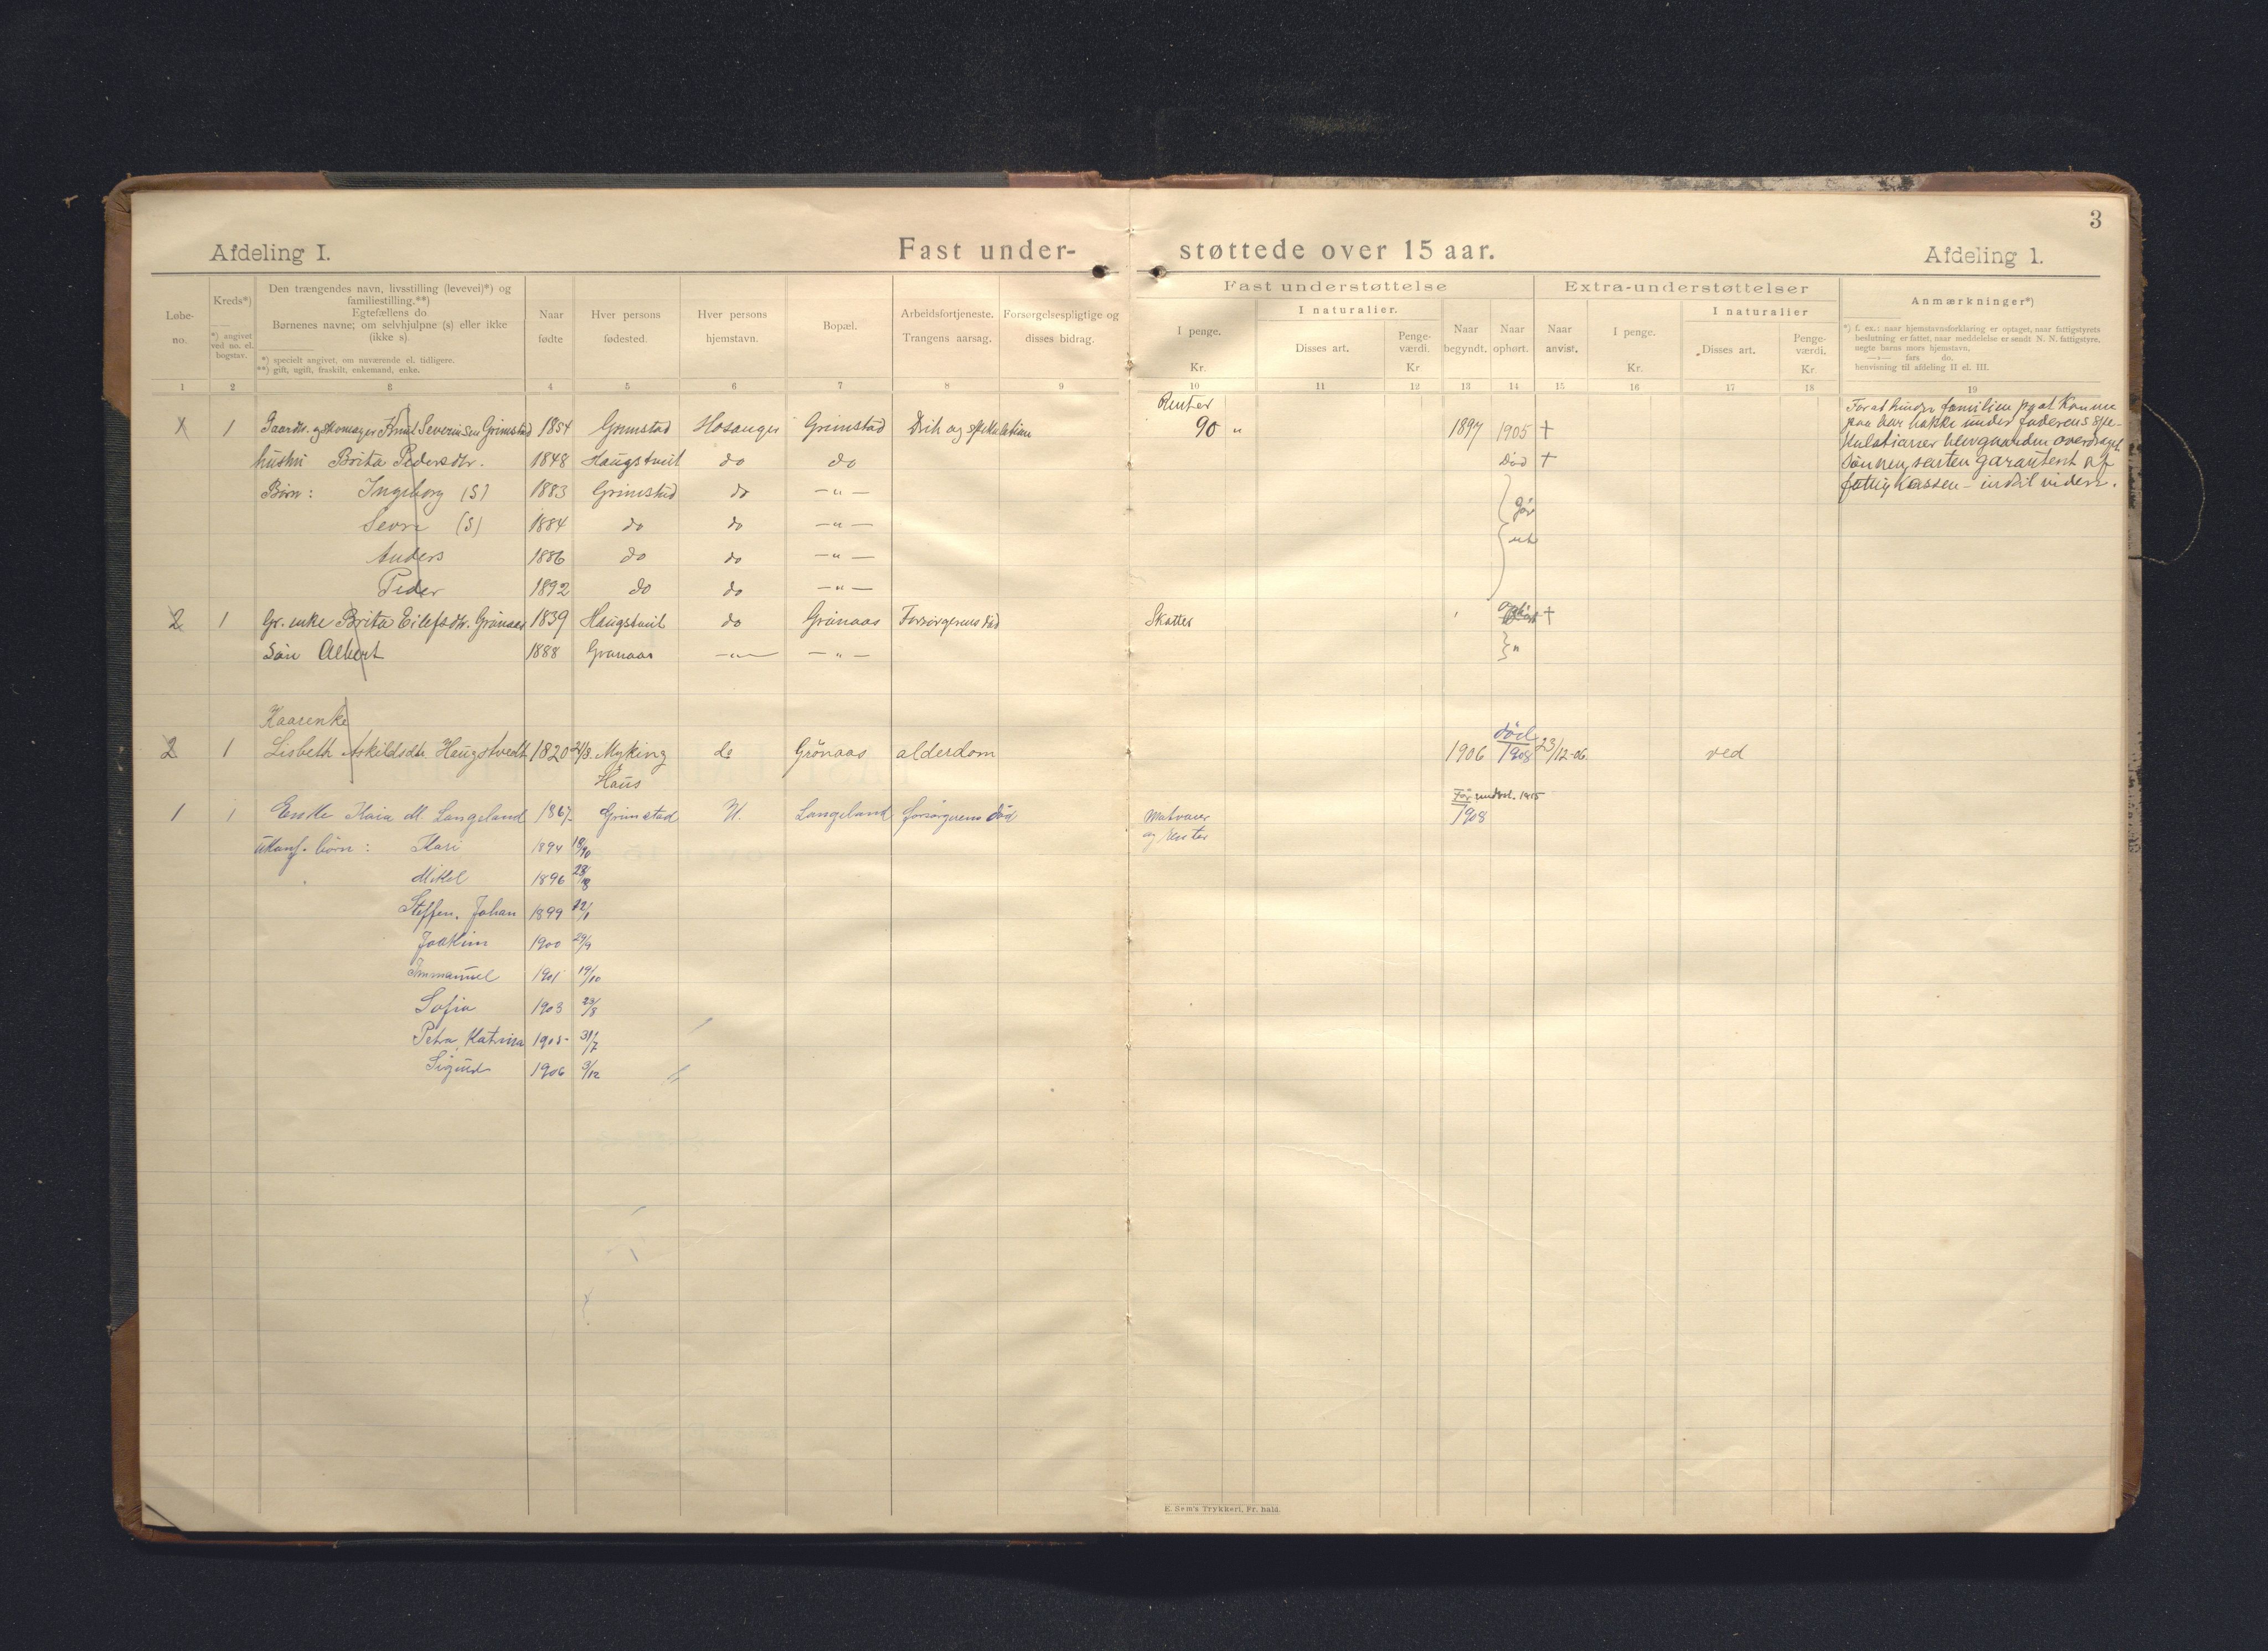 3
Afdeling I. Fast under- støttede over 15 aar. Afdeling 1.
Fast understøttelse Extra-understøttelser
Løbe-
no.
Kreds*)
*) angivet
ved no. el.
bogstav.
Den trængendes navn, livsstilling (levevei)*) og
familiestilling.**)
Egtefællens do.
Børnenes navne; om selvhjulpne (s) eller ikke
(ikke s).
*) specielt angivet, om nuværende el. tidligere.
**) gift, ugift, fraskilt, enkemand, enke.
Naar
fødte
Hver persons
fødested.
Hver persons
hjemstavn.
Bopæl.
Arbeidsfortjeneste.
Trangens aarsag.
Forsørgelsespligtige og
disses bidrag.
I penge.
Kr.
I naturalier.
Disses art.
Penge-
værdi.
Kr
Naar
begyndt.
Naar
ophørt.
Naar
anvist.
I penge.
Kr.
I naturalier
Disses art.
Penge-
værdi.
Kr
Anmærkninger*)
*) f. ex.: naar hjemstavnsforklaring er optaget, naar fattigstyrets
beslutning er fattet, naar meddelelse er sendt N. N. fattigstyre,
uegte barns mors hjemstavn,
—»— fars do.
henvisning til afdeling II el. III.
1 2 3 4 5 6 7 8 9 10 11 12 13 14 15 16 17 18 19
Renter
1 1 Gaardbr. og skomager Knut Severinsen Grimstad 1854 Grimstad Hosanger Grimstad Drik og spekulation 90 " 1897 1905 +
hustru Brita Pedersdtr. 1848 Haugstveit do do Død +
Børn: Ingeborg (S) 1883 Grimstad do —"—
Sevrin (S) 1884 do do —"—
Anders 1886 do do —"—
Peder 1892 do do —"—
For at hindre familien fra at komme
paa bar bakke under faderens spe-
kulationer blev gaarden overdraget
sønnen, renten garantert af
fattigkassen - indtil videre.
2 1 Gr. enke Brita Eilefsdtr. Grønaas 1839 Haugstveit do Grønaas Forsørgerens død Skatter +
Søn Albert 1888 Grønaas —"— —"— "
Kaarenke
2 1 Lisbeth Askildsdtr Haugstvedt 1820 21/3. Myking do Grønaas alderdom 1906 død 1908 23/12-06 ved
Haus
1 1 Enke Kaia M. Langeland 1867. Grimstad H. Langeland forsørgerens død Matvarer 1908
og renter
Før underst. 1905
Ukonf. børn: Kari 1894 18/10
Mikal 1896
Steffen. Johan 1899 22/1
Joakim 1900 29/9
Immanuel 1901 19/10
Sofia 1903 23/8
Petra Katrina 1905 31/7
Sigurd 1906 3/12
E. Sem's Trykkeri, Fr. hald.